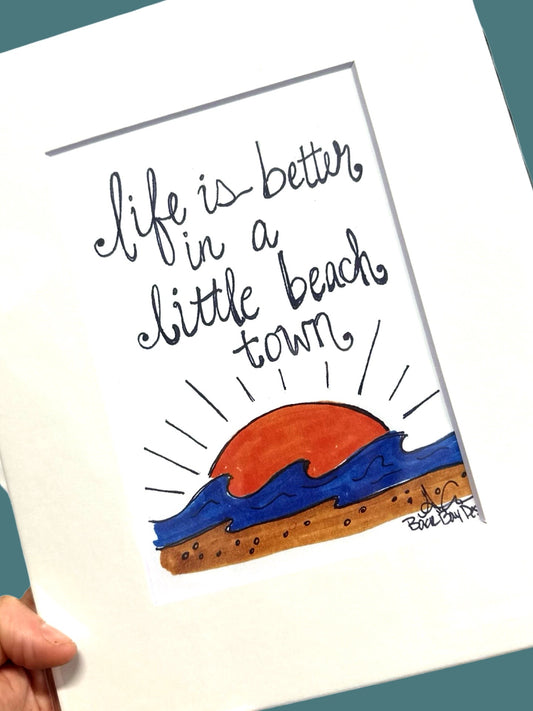 life is better
in a
little beach
town
Back Bay